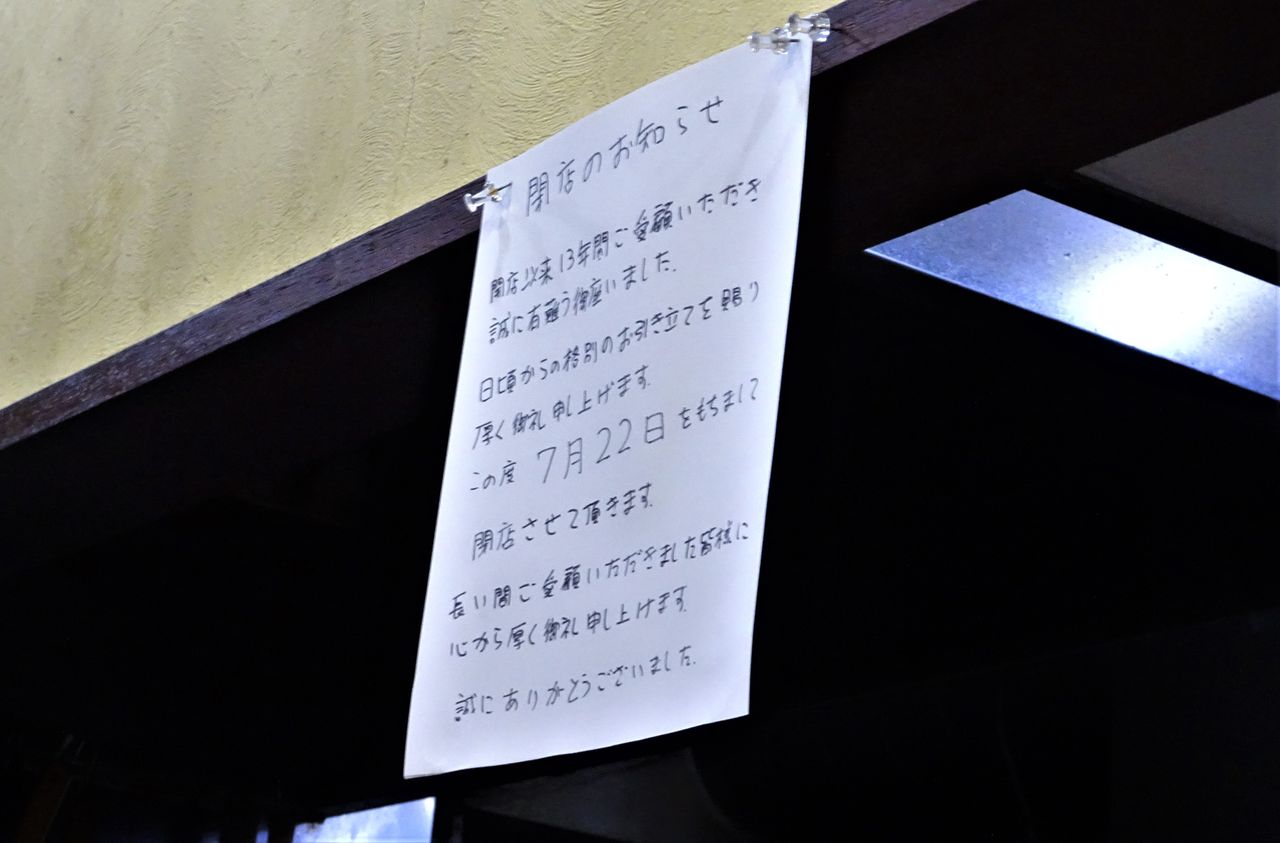 閉店のお知らせ
開店以来13年間ご愛顧いただき
誠に有難う御座いました。
日頃からの格別のお引き立てを賜り
厚く御礼申し上げます。
この度 7月22日をもちまして
閉店させて頂きます。
長い間ご愛顧いただきました皆様に
心から厚く御礼申し上げます。
誠にありがとうございました。